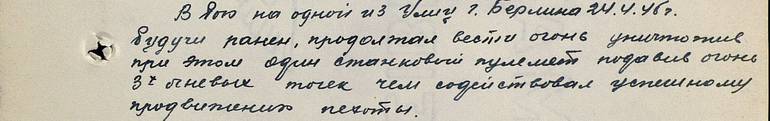 В бою на одной из улиц г. Берлина 24.4.45г.
будучи ранен, продолжал вести огонь уничтожив
при этом один станковой пулемет подавив огонь
3х огневых точек чем содействовал успешному
продвижению пехоты.